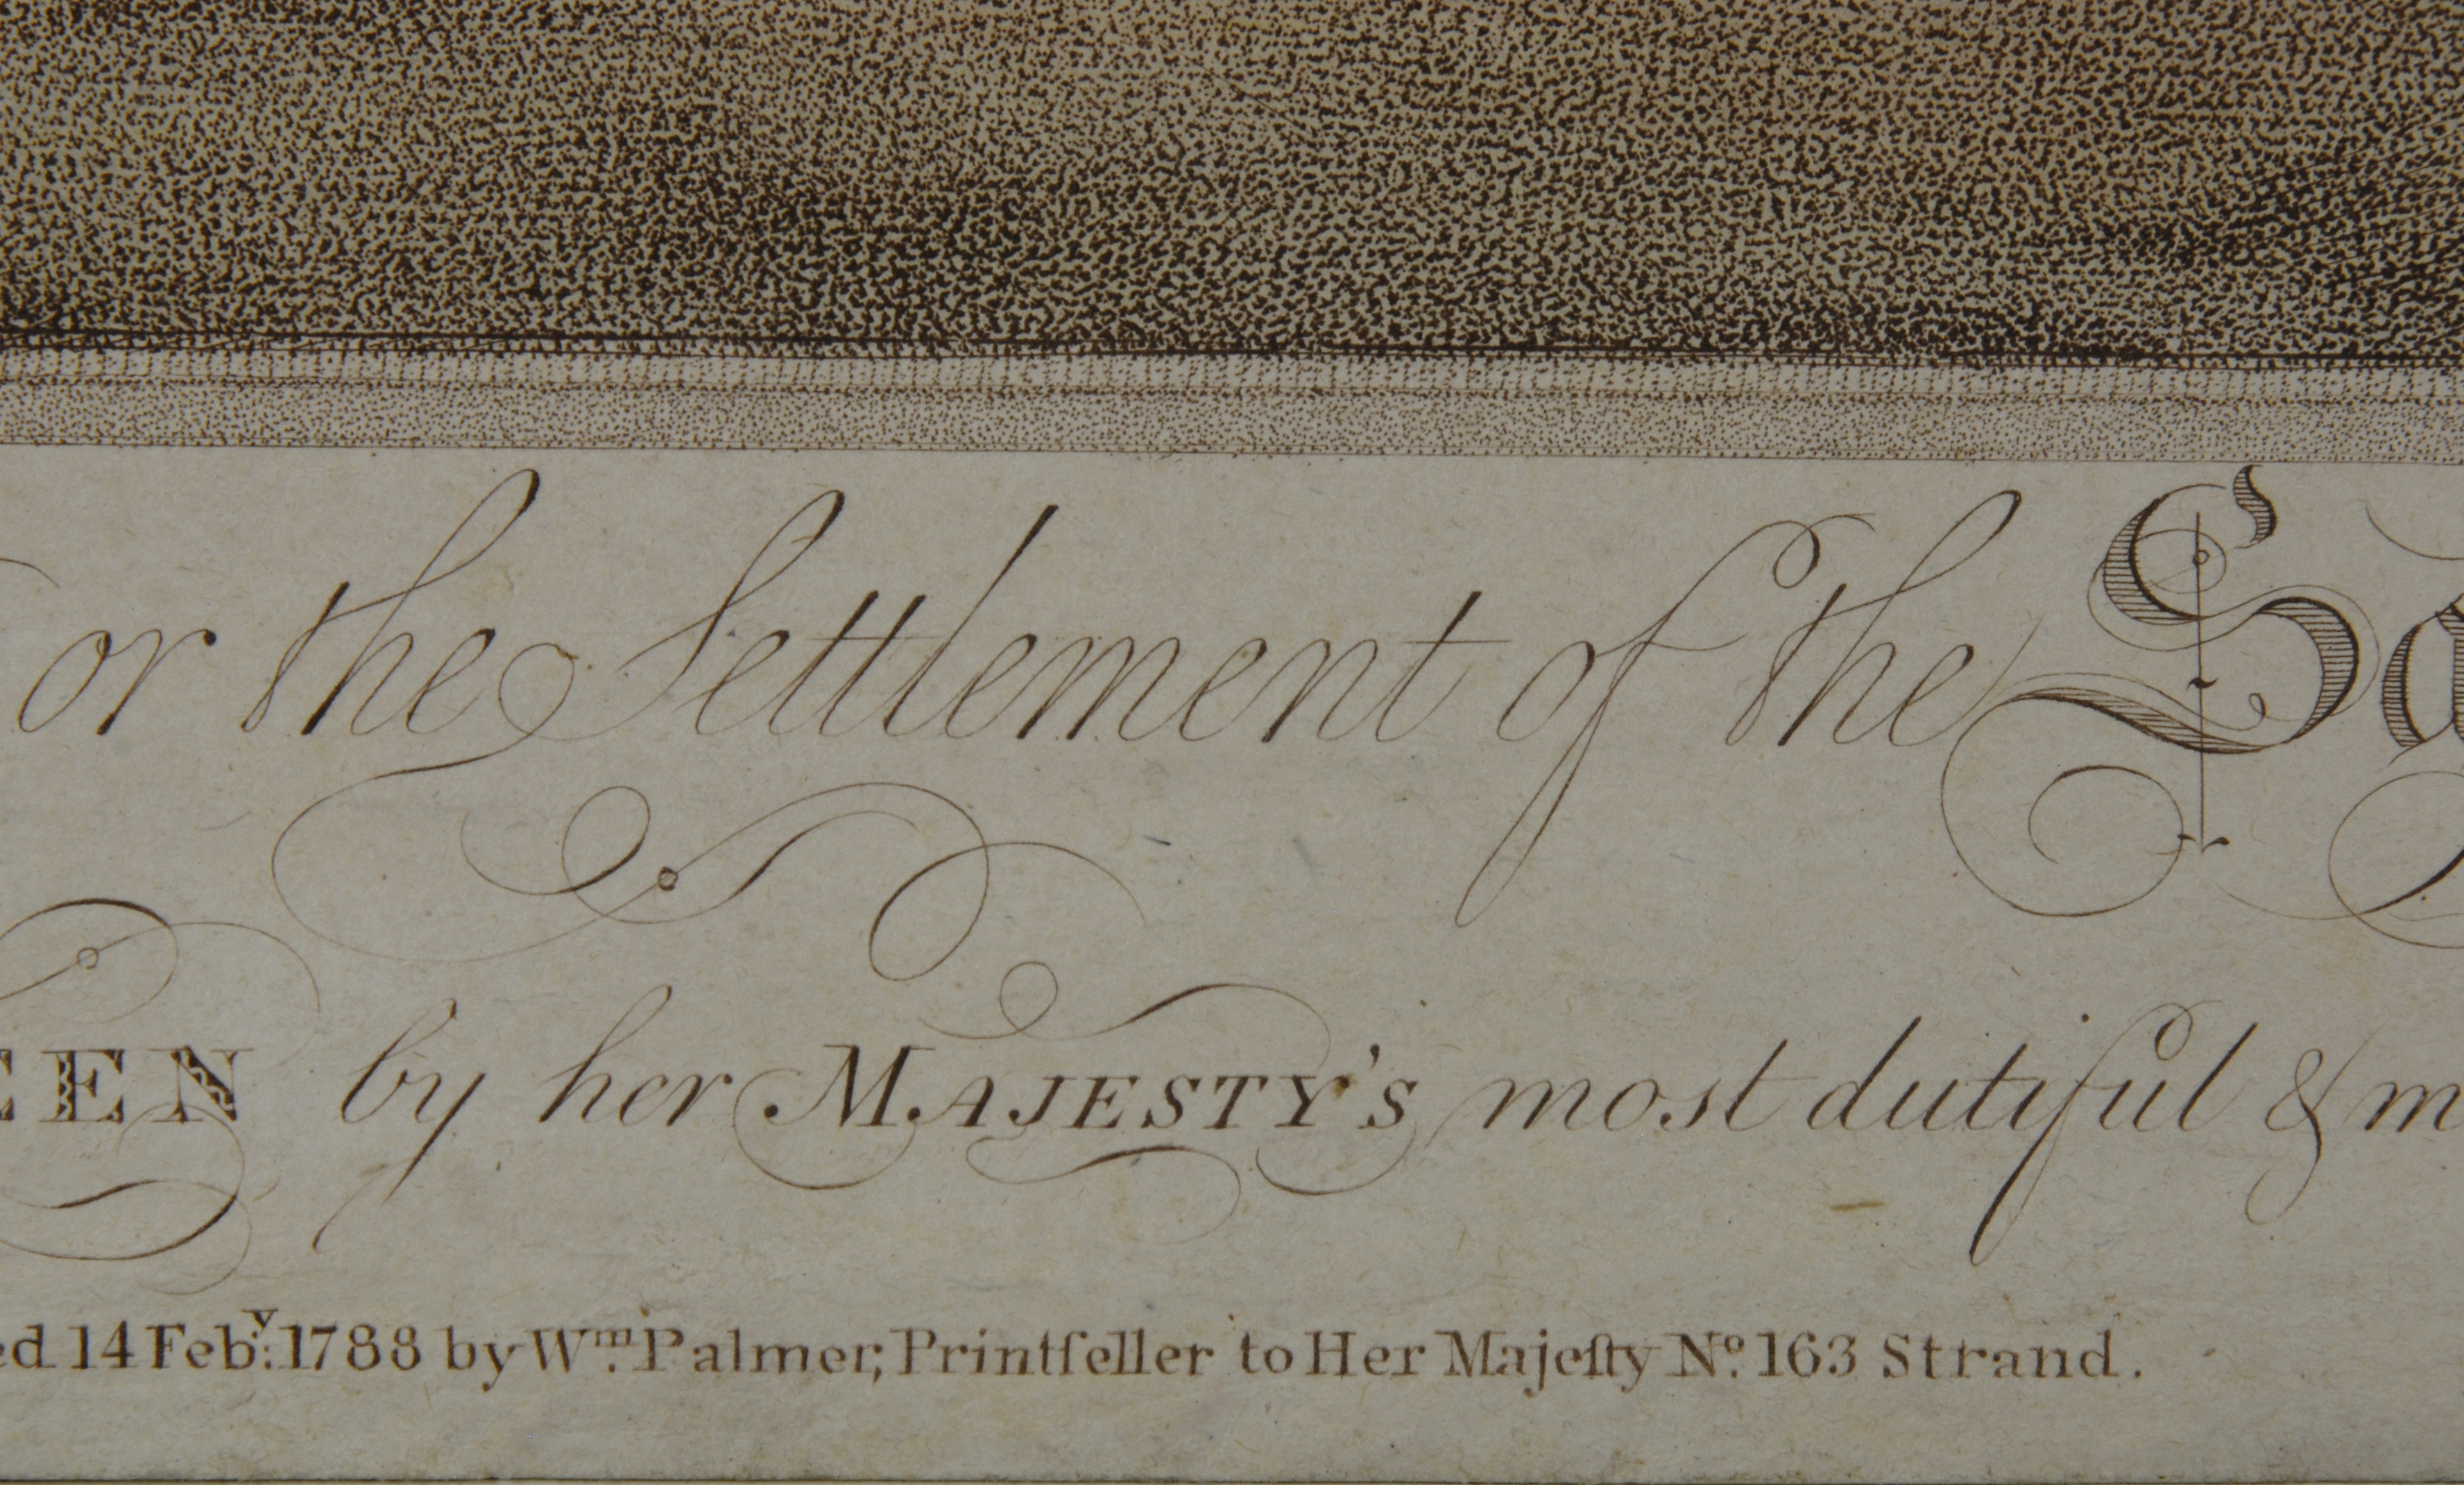 or the Settlement of the Sa
EEN by her MAJESTY'S most dutiful & m
ed 14 Feb.y 1788 by Wm. Palmer, Printſeller to Her Majeſty No. 163 Strand.